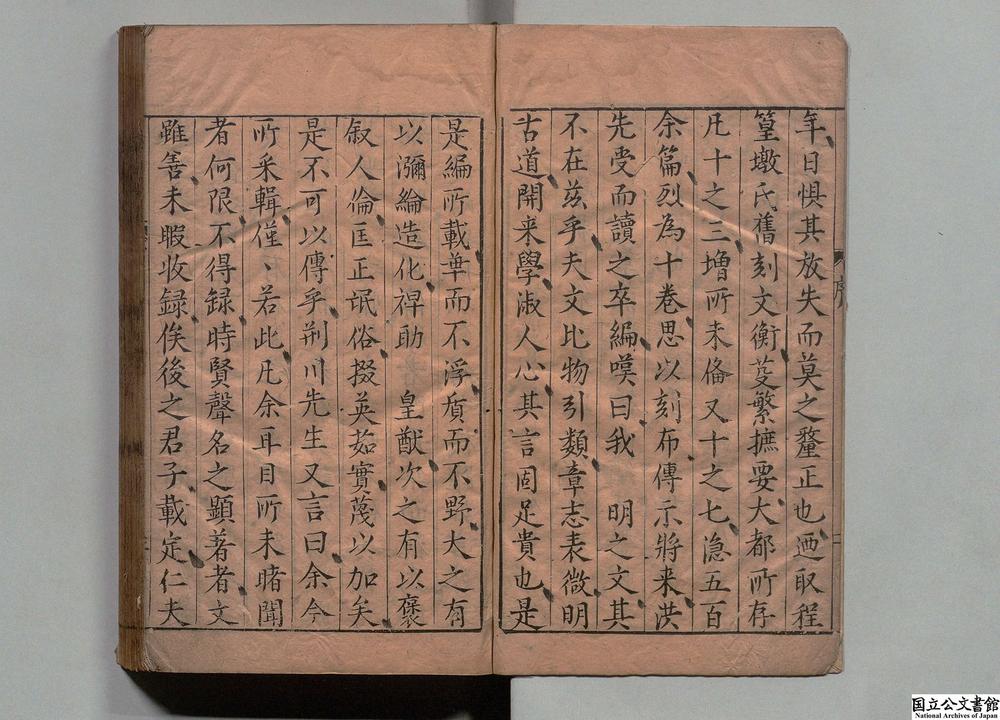 年日惧其放失而莫之釐正也迺取程
篁墩氏舊刻文衡芟繁摭要大都所存
凡十之三增所未俻又十之七湓五百
余篇烈為十卷思以刻布傳示將来洪
先受而讀之卒編嘆曰我　明之文其
不在茲乎夫文比物引類章志表微明
古道開来學淑人心其言固足貴也是
是編所載華而不浮质而不野大之有
以瀰綸造化禆助　皇猷次之有以褒
叙人倫匡正氓俗掇英茹實蔑以加矣
是不可以傳乎荊川先生又言曰余今
所采輯僅〻若此凡余耳目所未睹聞
者何限不得録時賢聲名之顯著者文
雖善未暇收録俟後之君子載定仁夫
序
国立公文書館
National Archives of Japan